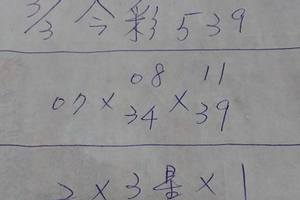 3/3 今彩539
08 11
07 × 34 × 39
2 × 3星 × 1